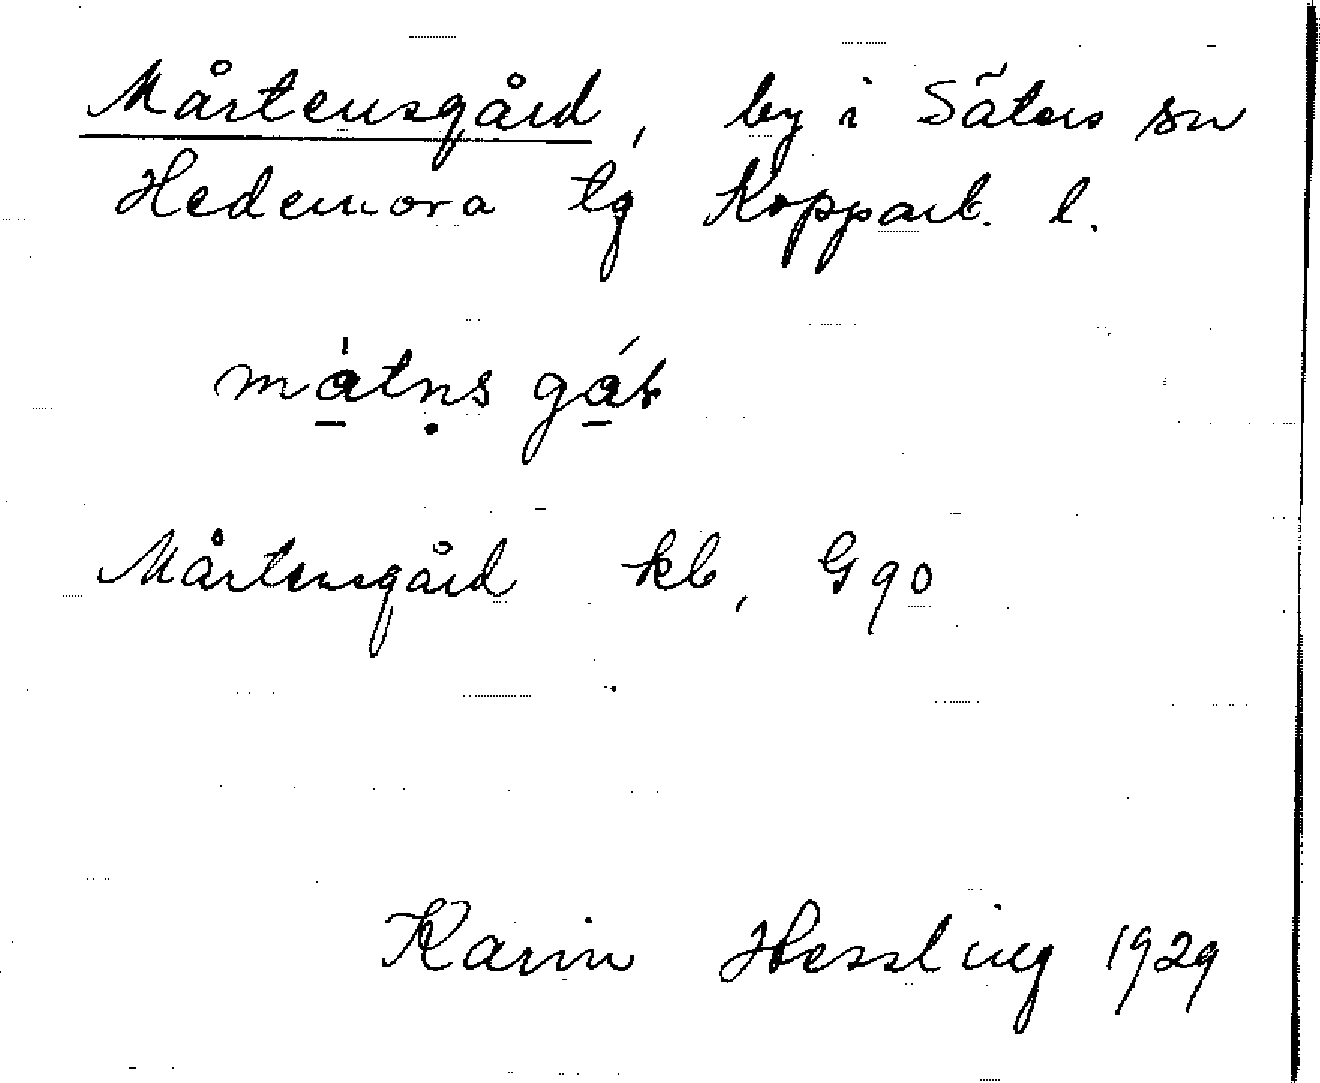 Mårtensgård, by i Säters sn
Hedemora tg Kopparb. l.
måtn̩s gå
Mårtensgård kb, G90
Karin Hessling 1929